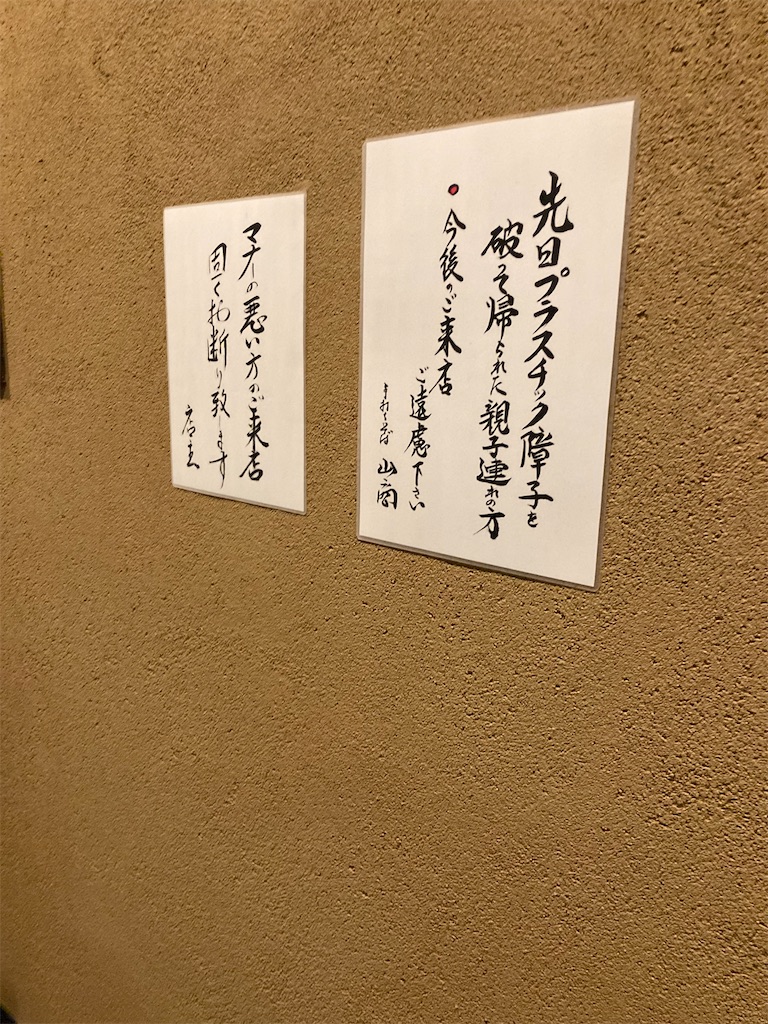 先日プラスチック障子を
破って帰られた親子連れの方
今後のご来店
ご遠慮下さい
手打そば 山商
マナーの悪い方のご来店
固くお断り致します
店主